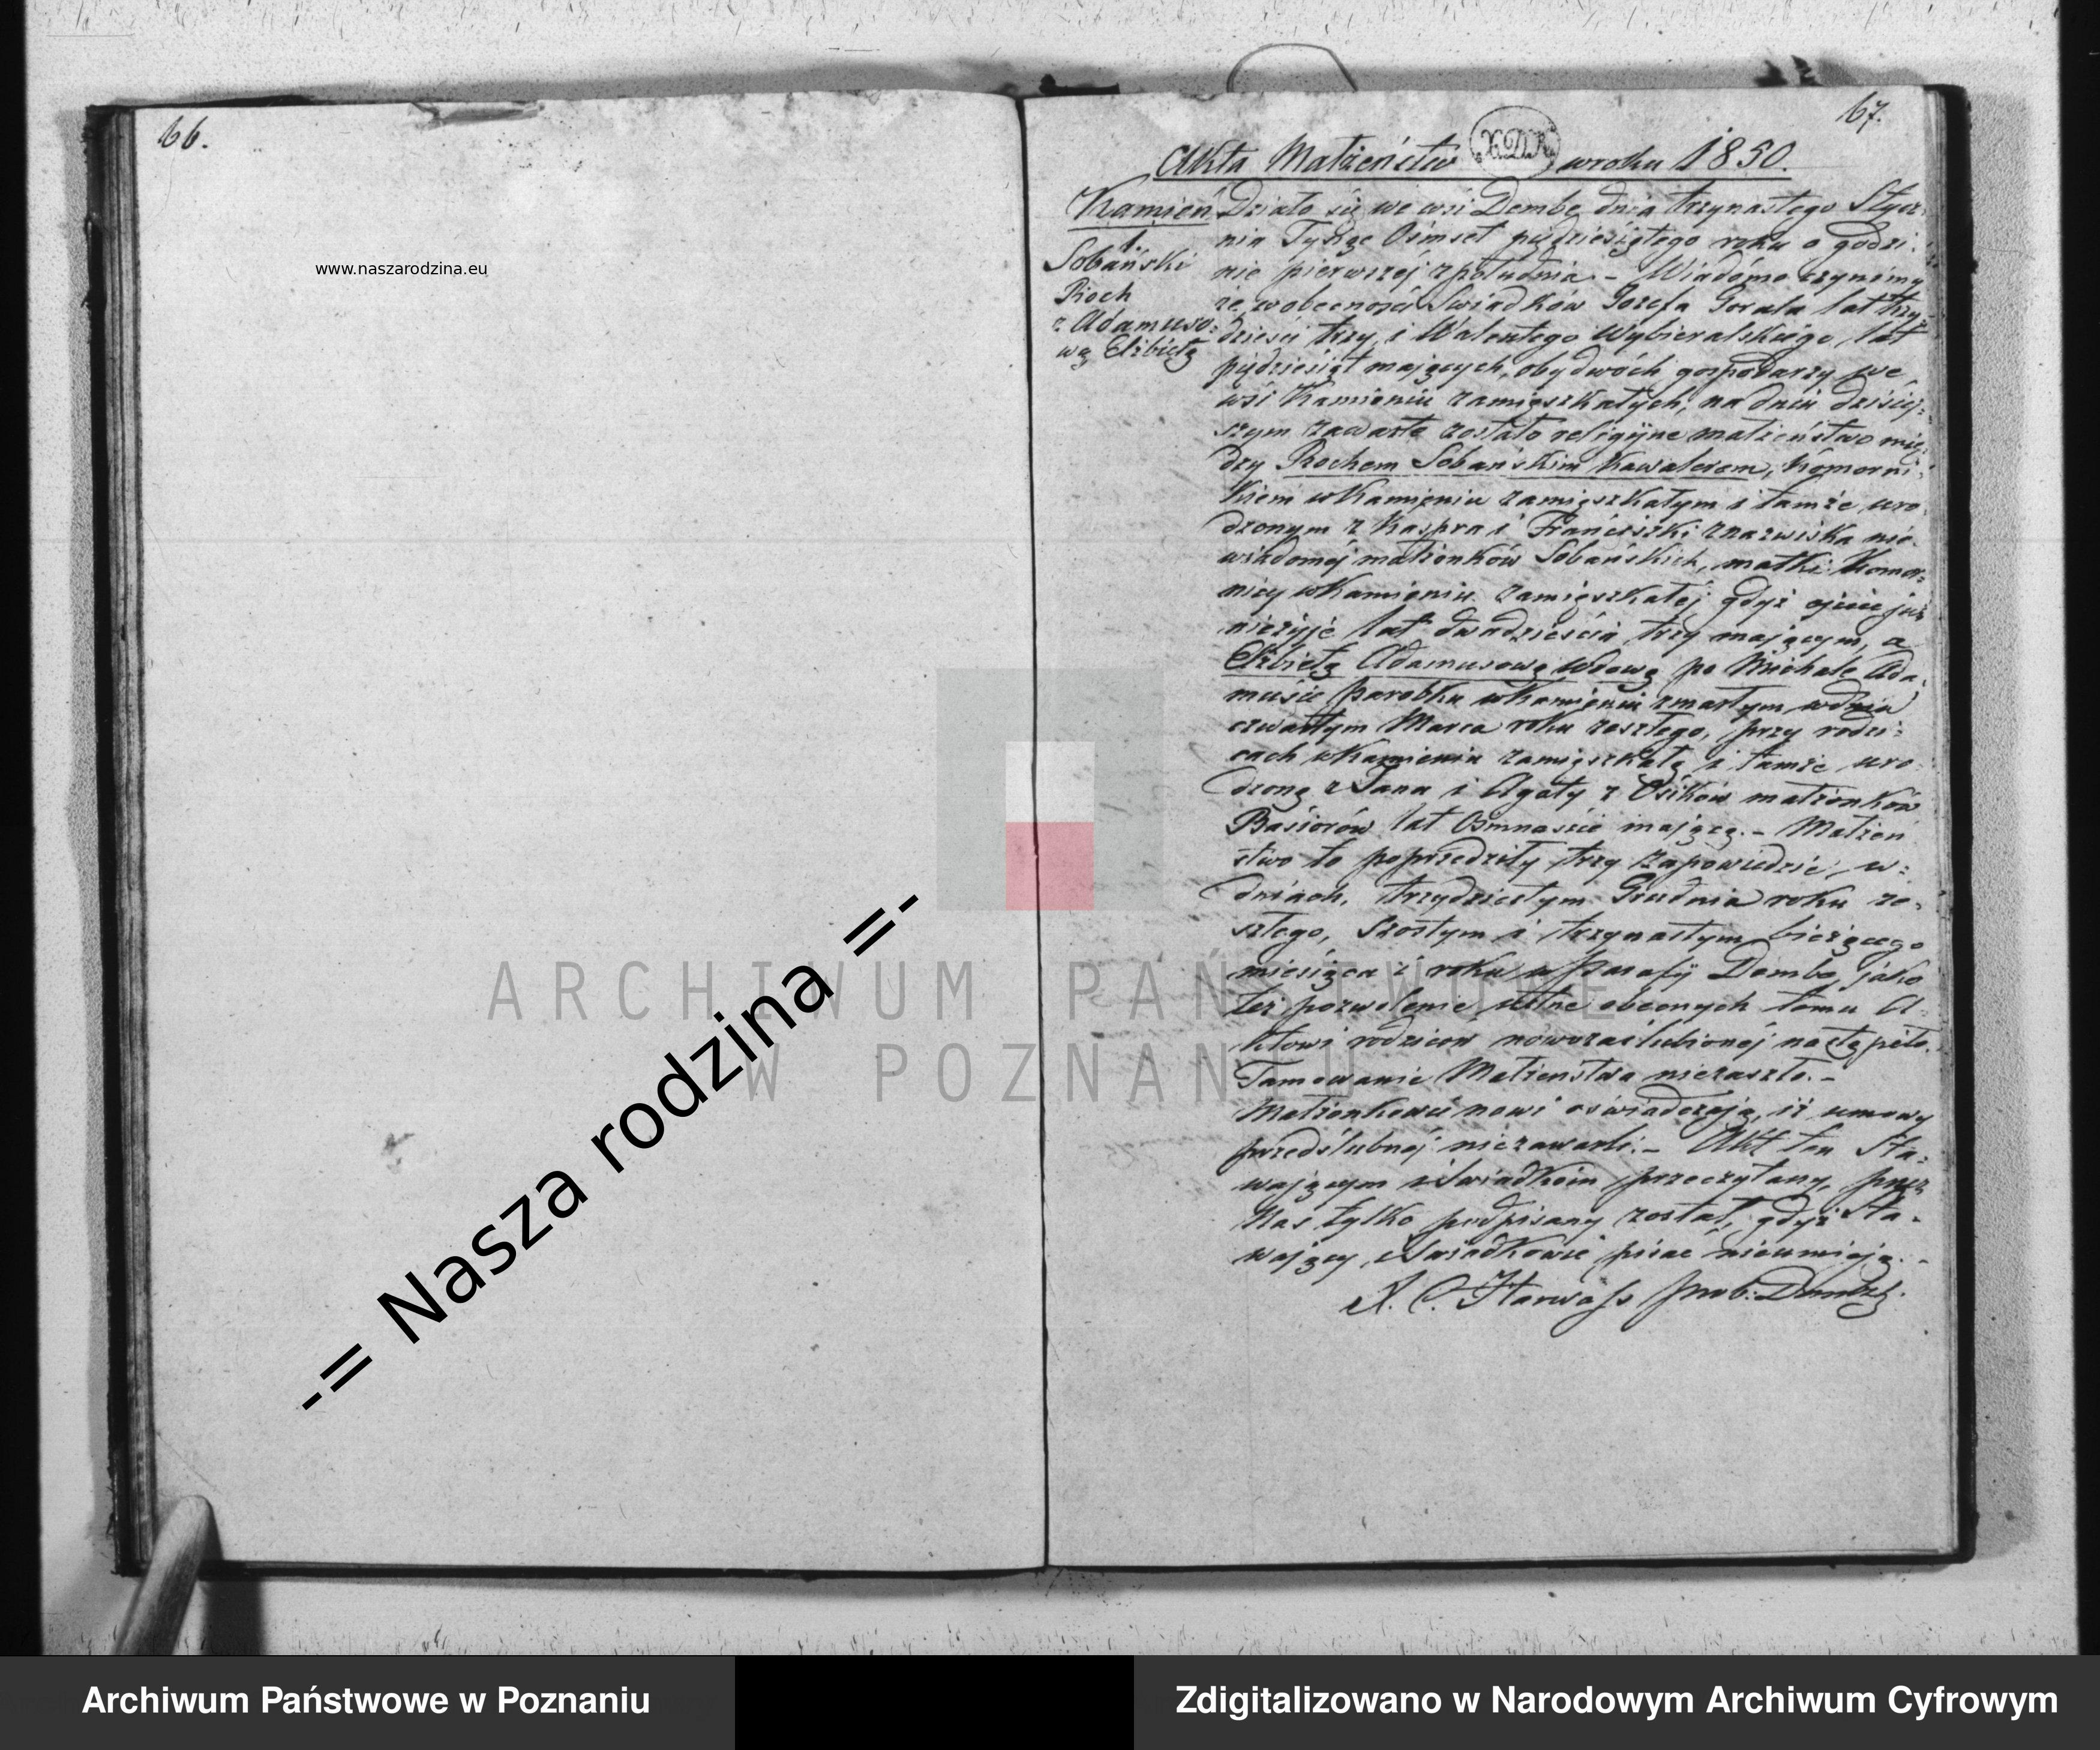 66.
www.naszarodzina.eu
67.
Akta Małżeństw w roku 1850.
XDK
Kamień
1.
Sobański
Roch
z Adamuso-
wą Elżbietą
Działo się we wsi Dembe dnia trzynastego Stycz-
nia Tysiąc Ośmset piędziesiątego roku o godzi-
nie pierwszéj z południa. – Wiadomo czynimy
że w obecności Swiadków Jozefa Gorala lat trzy-
dzieści trzy, i Walentego Wybieralskiego, lat
piędziesiąt mających, obydwóch gospodarzy we
wsi Kamieniu zamięszkałych, na dniu dzisiéj-
szym zawarte zostało religijne małżeństwo mię-
dzy Rochem Sobańskim Kawalerem, Komorni-
kiem w Kamieniu zamięszkałym i tamże uro-
dzonym z Kaspra i Franciszki z nazwiska nie-
wiadoméj małżonków Sobańskich, matki Komor-
nicy w Kamieniu zamięszkałej gdyż ojciec już
nieżyje lat dwadzieścia trzy mającym, a
Elżbietą Adamusową Wdową po Michale Ada-
musie parobku w Kamieniu zmarłym w dniu
czwartym Marca roku zeszłego, przy rodzi-
cach w Kamieniu zamięszkałą i tamże uro-
dzoną z Jana i Agaty z Osików małżonków
Basiorów lat Ośmnaście mającą. – Małżeń
stwo to poprzedziły trzy zapowiedzie, w-
dniach, trzydziestym Grudnia roku ze-
szłego, szóstym i trzynastym bieżącego
miesiąca i roku w Parafij Dembe, jako
też pozwolenie ustne obecnych temu A-
ktowi rodziców nowozaślubionéj nastąpiło.
Tamowanie Małżeństwa niezaszło. –
Małżonkowie nowi oświadczają, iż umowy
przedślubnéj niezawarli. – Akt ten Sta-
wającym i Swiadkom przeczytany, przez
Nas tylko podpisany został, gdyż Sta-
wający, i Swiadkowie pisać nieumieją. –
X. C. Prob:
ARCHIWUM PAŃSTWOWE
W POZNANIU
-= Nasza rodzina =-
Archiwum Państwowe w Poznaniu
Zdigitalizowano w Narodowym Archiwum Cyfrowym